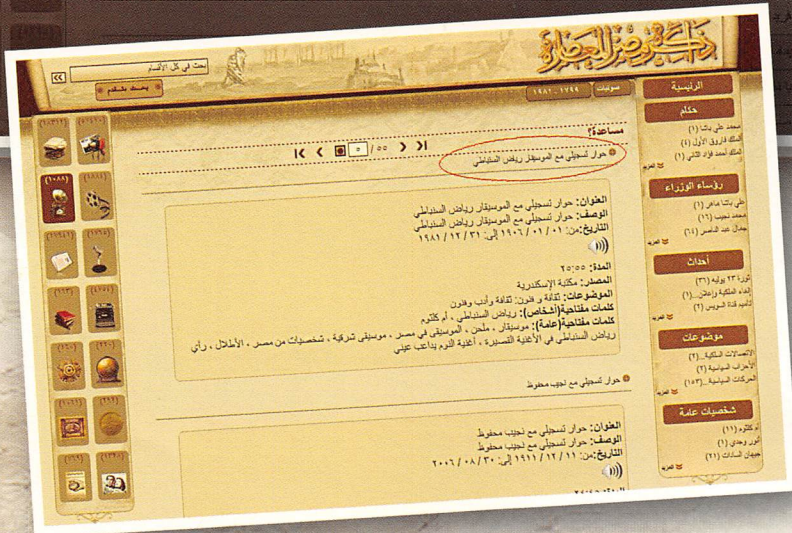 ذاكرة مصر المعاصرة
بحث في كل الأقسام
بحث متقدم
صوتيات
١٧٩٩ - ١٩٨١
الرئيسية
حكام
محمد علي باشا (١)
الملك فاروق الأول (٤)
الملك أحمد فؤاد الثاني (١)
المزيد
رؤساء الوزراء
علي باشا ماهر (١)
محمد نجيب (١٦)
جمال عبد الناصر (٦٤)
المزيد
أحداث
ثورة ٢٣ يوليه (٣٦)
إلغاء الملكية وإعلان...(١)
تأميم قناة السويس (٢)
المزيد
موضوعات
الاتصالات الملكية...(٢)
الأحزاب السياسية (٢)
الحركات السياسية...(١٥٣)
المزيد
شخصيات عامة
أم كلثوم (١١)
أنور وجدي (١)
جيهان السادات (٢١)
المزيد
مساعدة؟
٥٥ /
حوار تسجيلي مع الموسيقار رياض السنباطي
العنوان: حوار تسجيلي مع الموسيقار رياض السنباطي
الوصف: حوار تسجيلي مع الموسيقار رياض السنباطي
التاريخ:من: ٠١ / ٠١ / ١٩٠٦ إلى: ٣١ / ١٢ / ١٩٨١
المدة: ٢٥:٥٥
المصدر: مكتبة الإسكندرية
الموضوعات: ثقافة و فنون: ثقافة وأدب وفنون
كلمات مفتاحية(أشخاص): رياض السنباطي ، أم كلثوم
كلمات مفتاحية(عامة): موسيقار ، ملحن ، الموسيقى في مصر ، موسيقى شرقية ، شخصيات من مصر ، الأطلال ، رأي
رياض السنباطي في الأغنية القصيرة ، أغنية النوم يداعب عيني
حوار تسجيلي مع نجيب محفوظ
العنوان: حوار تسجيلي مع نجيب محفوظ
الوصف: حوار تسجيلي مع نجيب محفوظ
التاريخ:من: ١١ / ١٢ / ١٩١١ إلى: ٣٠ / ٠٨ / ٢٠٠٦
(١٠٨٨)